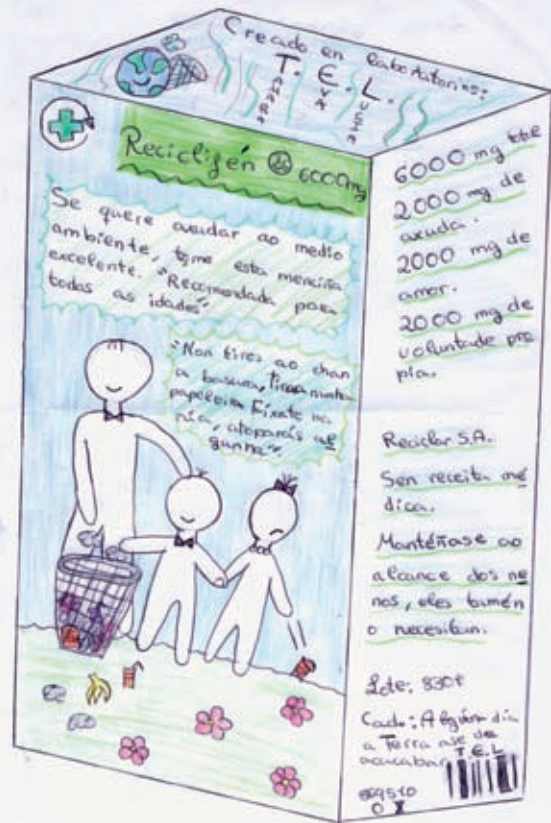 Creado en laboratorios:
T. E. L.
TAMARA
EVA
LUSÍA
Recicligén 6000mg
Se quere axudar ao medio
ambiente, tome esta menciña
excelente. "Recomendada para
todas as idades"
"Non tires ao chan
a basura, tiraa nunha
papeleira. Fíxate na
rúa, atoparás al
gunha"
6000 mg total
2000 mg de
axuda.
2000 mg de
amor.
2000 mg de
voluntade pro
pia.
Reciclar S.A.
Sen receita mé
dica.
Manténase ao
alcance dos ne
nos, eles tamén
o necesitan.
Lote:
Cade: Algún día
a Terra ase de
acabar
T.E.L